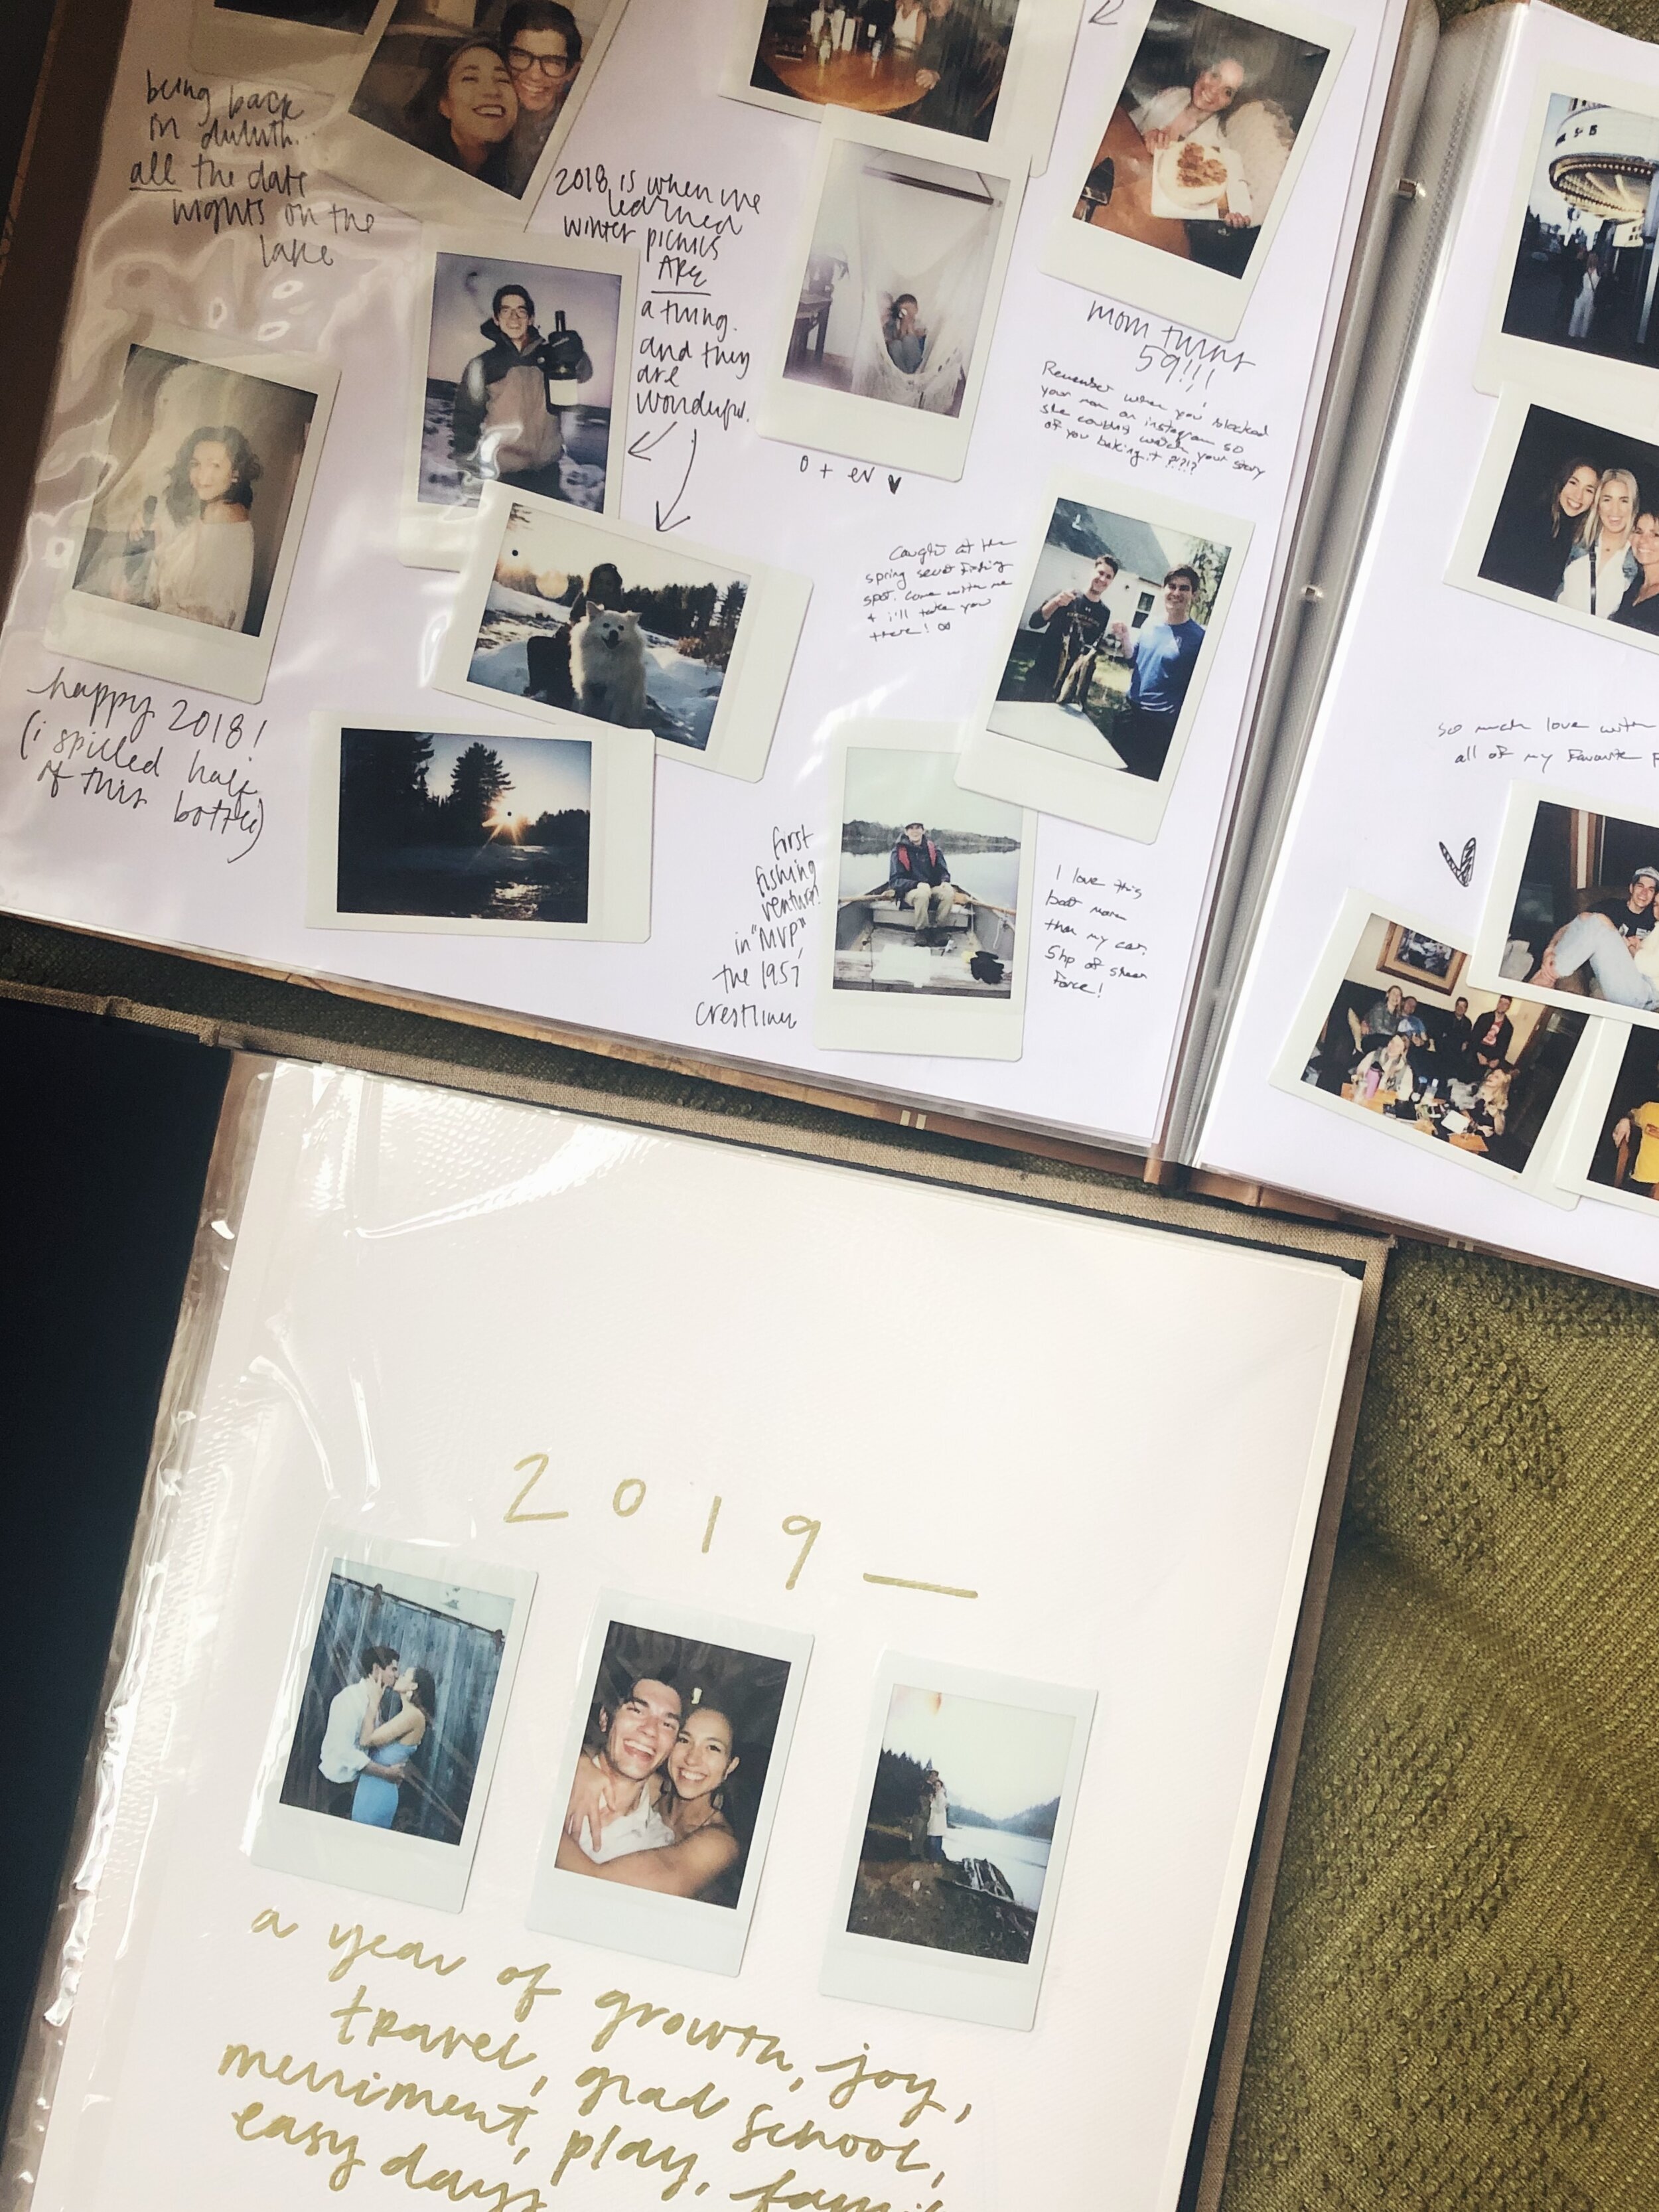 being back
in duluth...
all the date
nights on the
lake
2018 is when we
learned
winter picnics
ARE
a thing.
and they
are
wonderful.
mom turns
59!!!
Remember when you blocked
your mom on instagram so
she couldn't watch your story
of you baking it ?!?!?
o + ev
caught at the
spring secret fishing
spot. come with me
& i'll take you
there!
happy 2018!
(i spilled half
of this bottle)
first
fishing
venture!
in "MVP"
the 1957
crestliner
I love this
boat more
than my car.
5hp of sheer
force!
so much love with
all of my favorite
2019
a year of growth, joy,
travel, grad school,
merriment, play,
easy days